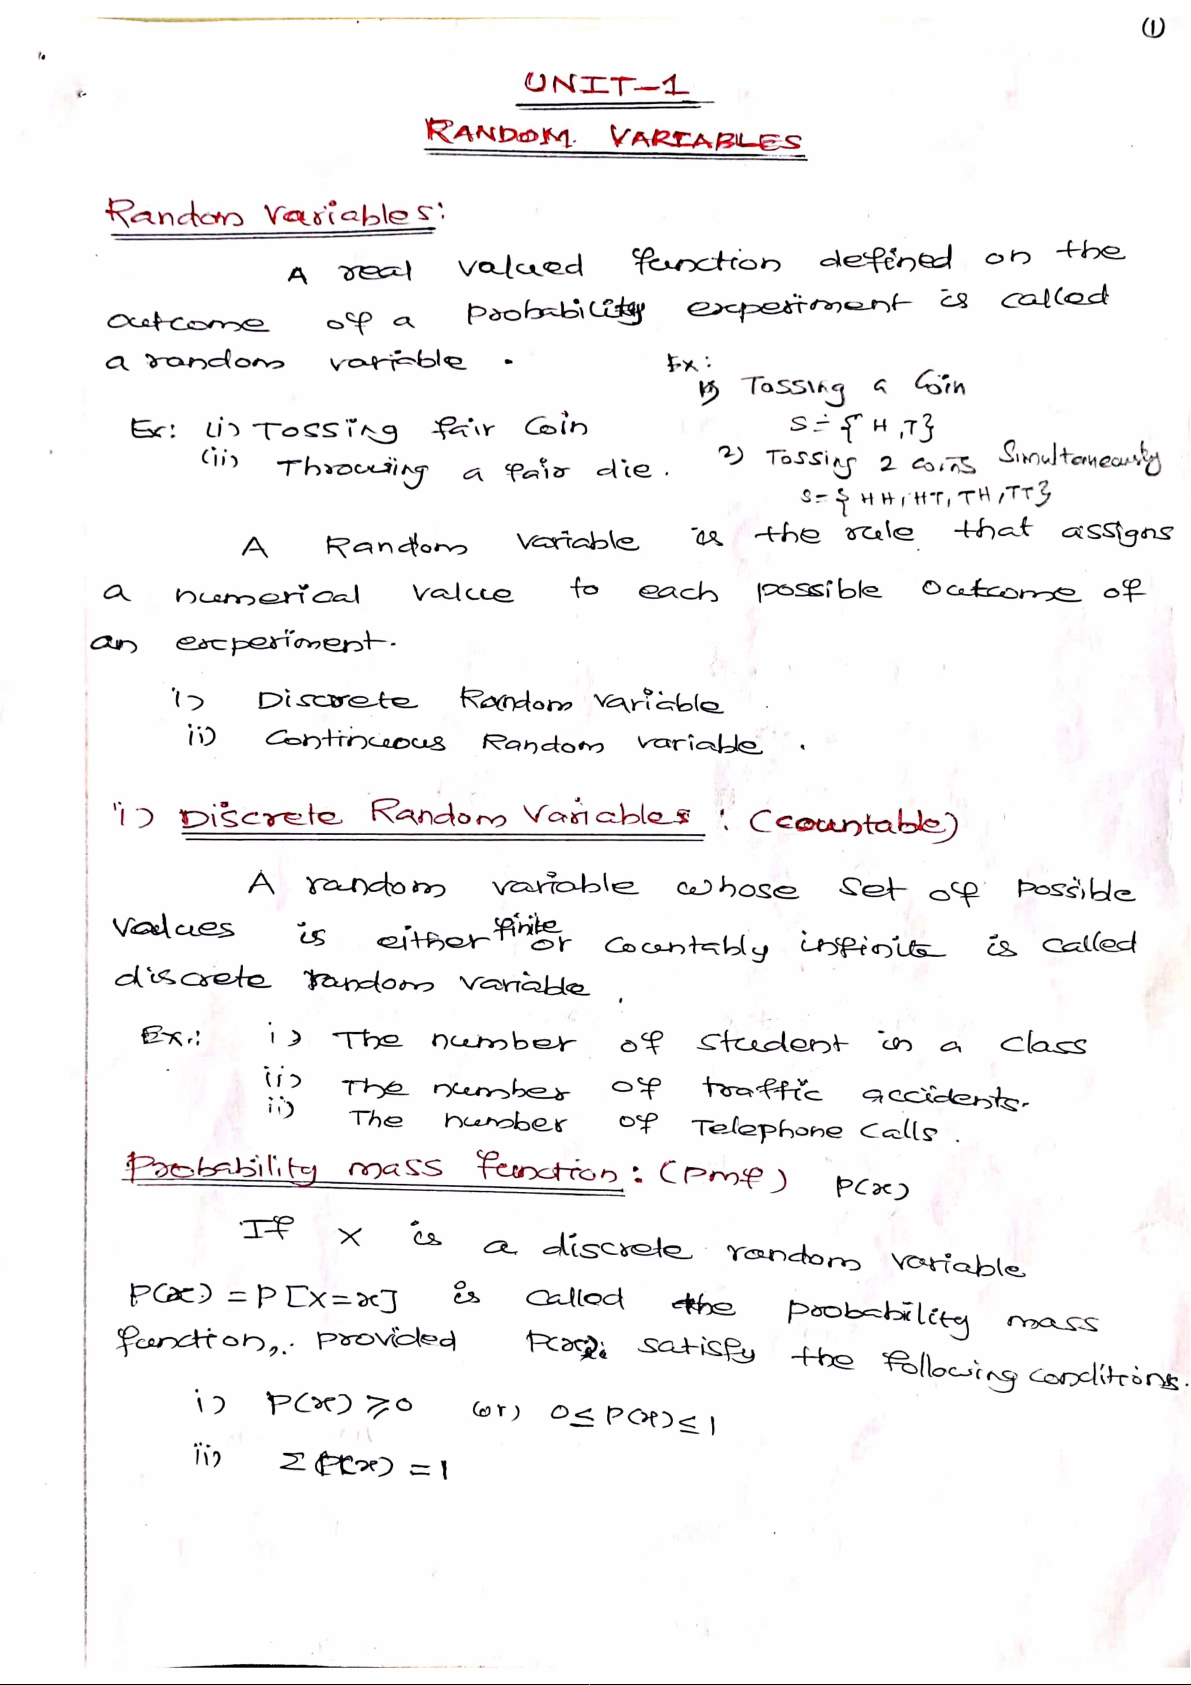 (1)
UNIT-1
RANDOM VARIABLES
Random Variables:
A real valued function defined on the
outcome of a probability experiment is called
a random variable.
Ex:
1) Tossing a Coin
S = { H ,T}
Ex: (i) Tossing fair Coin
(ii) Throwing a fair die.
2) Tossing 2 coins Simultaneously
S = { HH, HT, TH, TT}
A Random variable is the rule that assigns
a numerical value to each possible outcome of
an experiment.
i) Discrete Random variable
ii) Continuous Random variable .
i) Discrete Random Variables : (countable)
A random variable whose set of possible
values is either finite or countably infinite is called
discrete random variable.
Ex.: i) The number of student in a class
ii) The number of traffic accidents.
ii) The number of Telephone Calls.
Probability mass function: (pmf) P(x)
If X is a discrete random variable
P(x) = P[X=x] is called the probability mass
function, provided P(x) satisfy the following conditions.
i) P(x) ≥ 0 (or) 0 ≤ P(x) ≤ 1
ii) Σ P(x) = 1